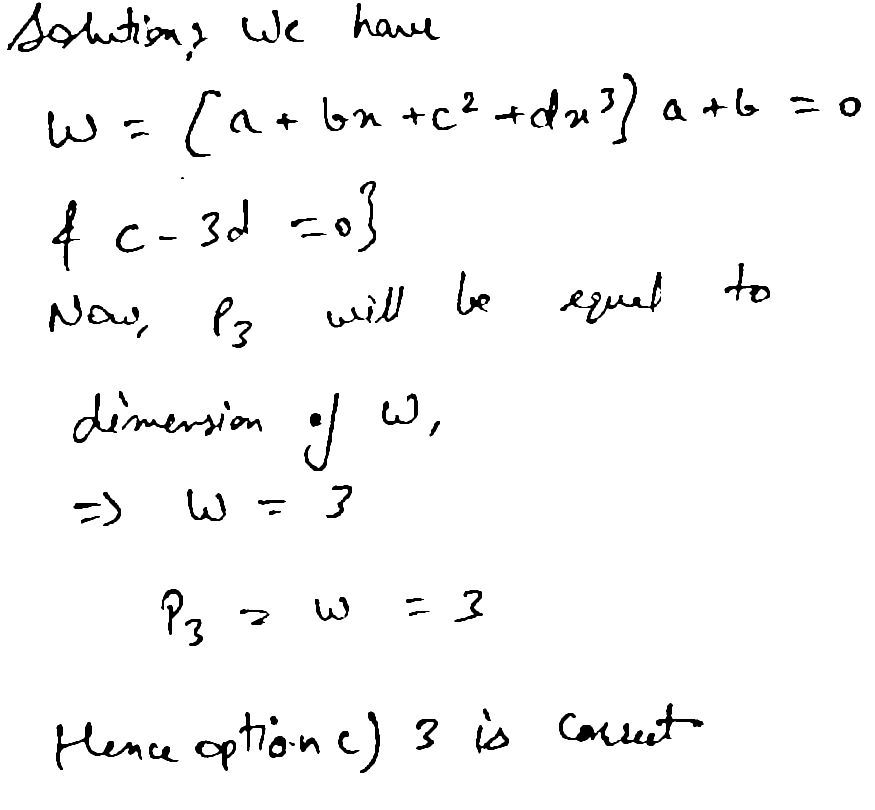 Solution, We have
W = [a + bx + c² + dx³} a + b = 0
& c - 3d = 0}
Now, P₃ will be equal to
dimension of W,
=> W = 3
P₃ = W = 3
Hence option c) 3 is correct